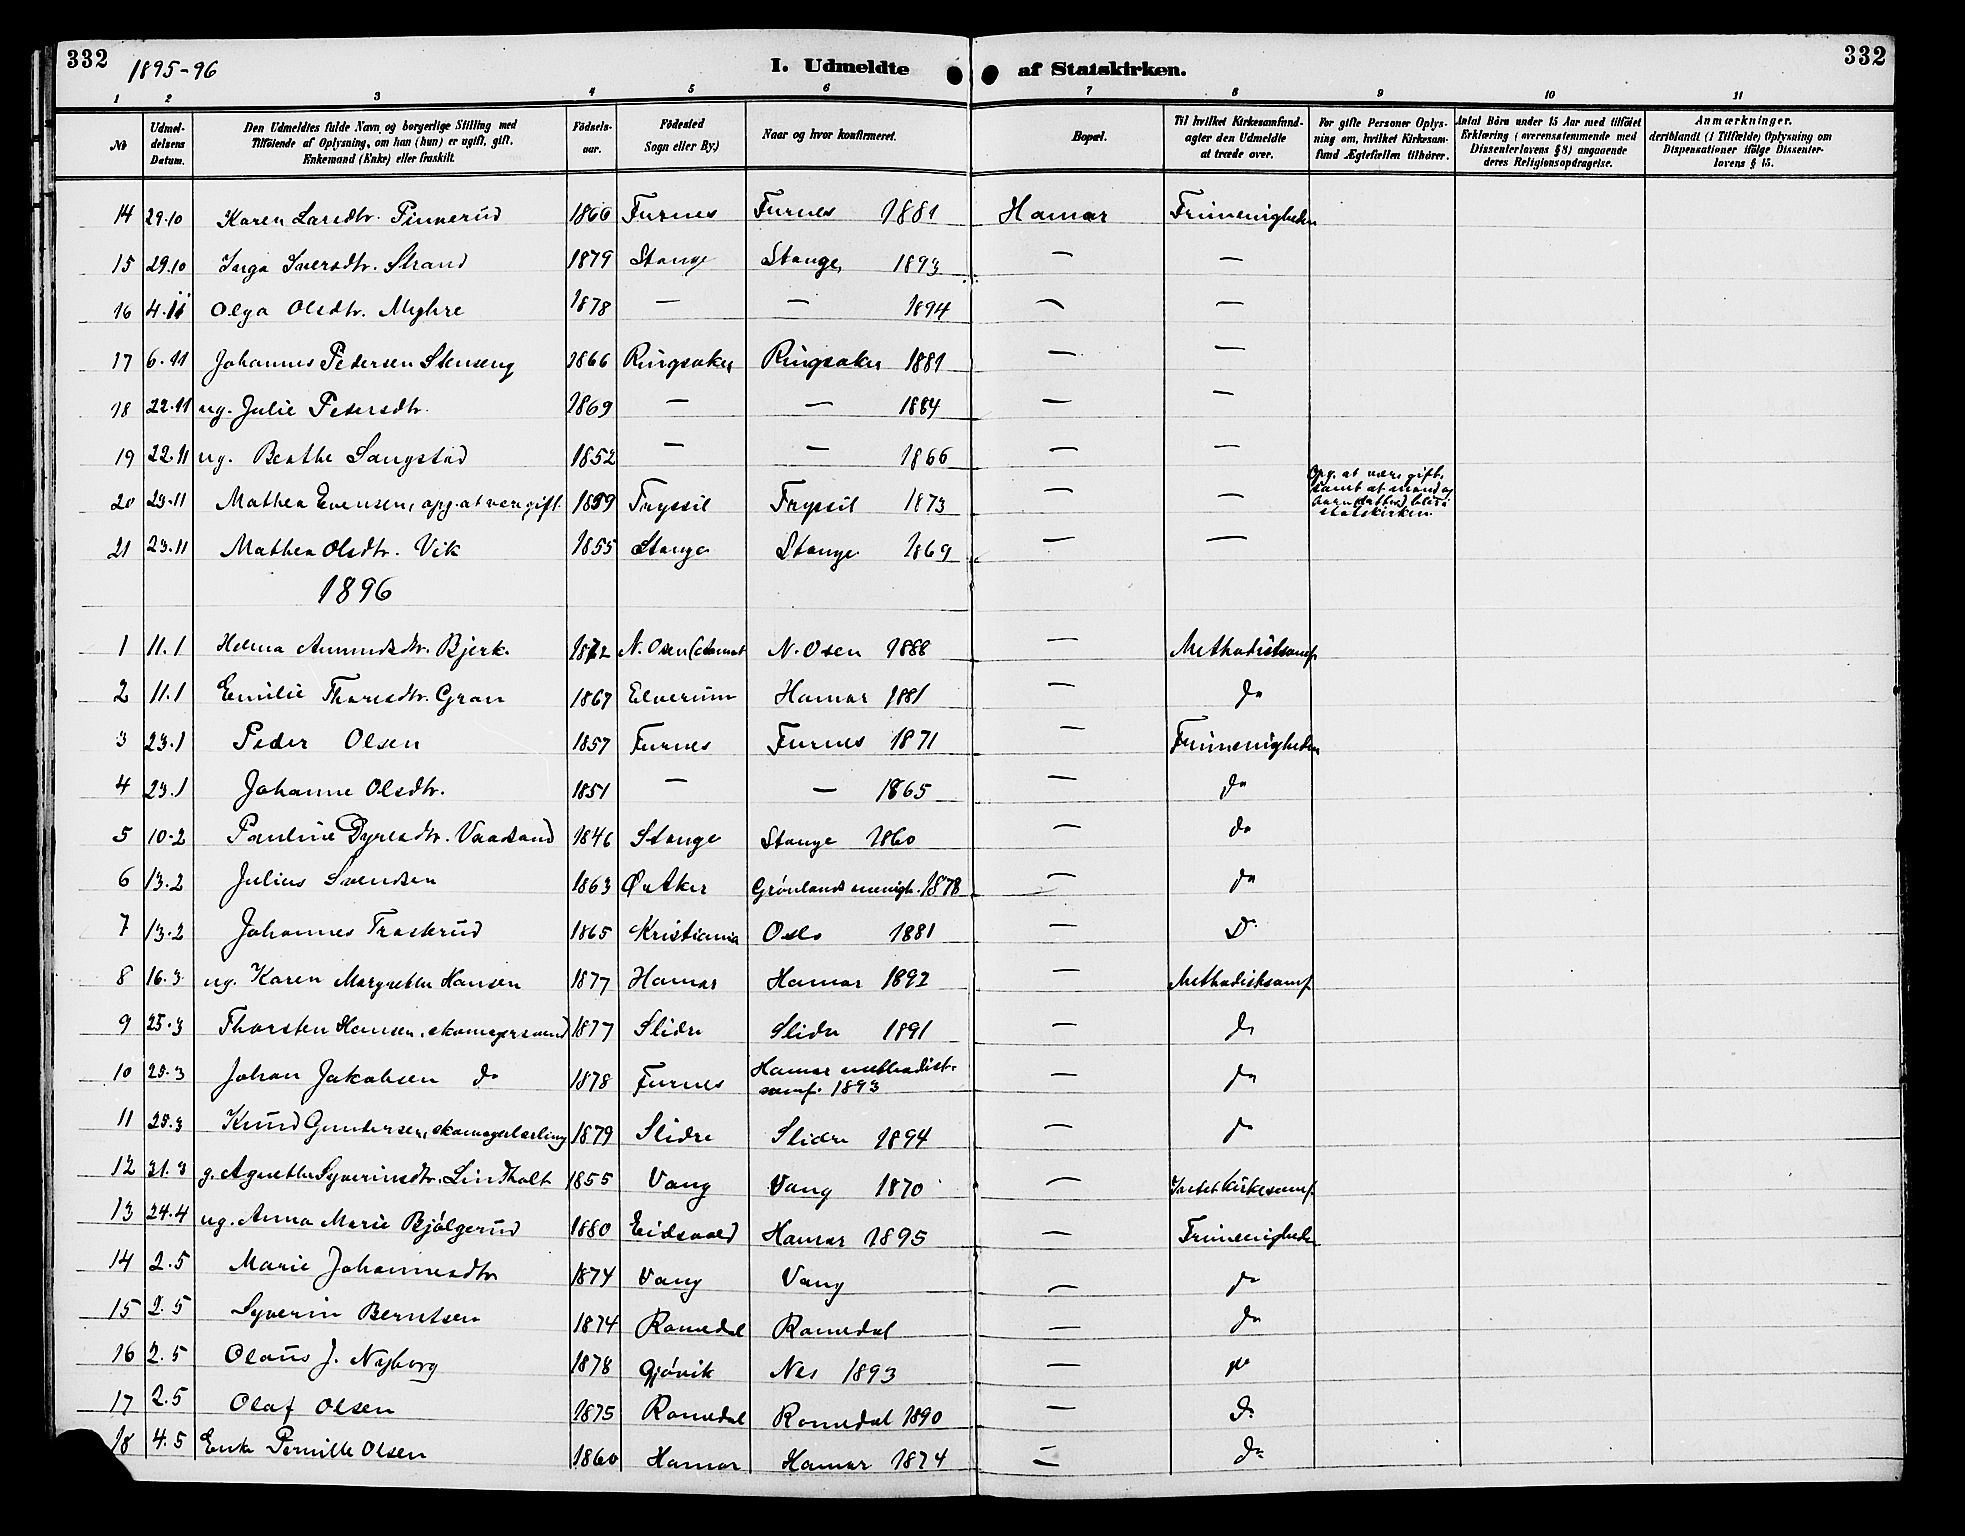 332 1895-96 I. Udmeldte af Statskirken. 332
1 2 3 4 5 6 7 8 9 10 11
No Udmeldelsens Datum. Den Udmeldtes fulde Navn og borgerlige Stilling med Tilföiende af Oplysning, om han (hun) er ugift, gift, Enkemand (Enke) eller fraskilt. Födselsaar. Födested Sogn eller By) Naar og hvor konfirmeret. Bopæl. Til hvilket Kirkesamfund agter den Udmeldte at træde over. For gifte Personer Oplysning om, hvilket Kirkesamfund Ægtefællen tilhörer. Antal Börn under 15 Aar med tilföiet Erklæring (overensstemmende med Dissenterlovens § 8) angaaende deres Religionsopdragelse. Anmærkninger, deriblandt (i Tilfælde) Oplysning om Dispensationer ifölge Dissenterlovens § 15.
14 29.10 Karen Larsdtr. Pinnerud 1866 Furnes Furnes 1881 Hamar Frimenigheden
15 29.10 Inga Iversdtr. Strand 1879 Stange Stange 1893 — —
16 4.11 Olga Olsdtr. Myhre 1878 — — 1894 — —
17 6.11 Johannes Pedersen Stenseng 1866 Ringsaker Ringsaker 1881 — —
18 22.11 ug. Julie Pedersdtr. 1869 — — 1884 — —
19 22.11 ug. Berthe Sangstad 1852 — — 1866 — —
20 23.11 Mathea Evensen, opg. at være gift 1859 Trysil Trysil 1873 — — Opg. at være gift, samt at mand og børn statskirken.
21 23.11 Mathea Olsdtr. Vik 1855 Stange Stange 1869 — —
1896
1 11.1 Helena Amundsdtr. Bjerk. 1872 N. Osen (Aamot N. Osen 1888 — Methodistsamf.
2 11.1 Emilie Thoresdtr. Gran 1867 Elverum Hamar 1881 — do
3 23.1 Peder Olsen 1857 Furnes Furnes 1871 — Frimenigheden
4 23.1 Johanne Olsdtr. 1851 — — 1865 — do
5 10.2 Pauline Dyresdtr. Vaadsand 1846 Stange Stange 1860 — do
6 13.2 Julius Svendsen 1863 Ø. Aker Grønlands menigh. 1878 — do
7 13.2 Johannes Trosterud 1865 Kristiania Oslo 1881 — Do
8 16.3 ug. Karen Margrethe Hansen 1877 Hamar Hamar 1892 — Methodistsamf.
9 25.3 Thorsten Hansen, skomagersvend 1877 Slidre Slidre 1891 — do
10 25.3 Johan Jakobsen do 1878 Furnes Hamar methodistsamf. 1893 — do
11 25.3 Knud Gundersen, skomagerlærling 1879 Slidre Slidre 1894 — do
12 31.3 g. Agnethe Syverinsdtr. Lindholt 1855 Vang Vang 1870 — Intet Kirkesamf.
13 24.4 ug. Anna Marie Bjølgerud 1880 Eidsvold Hamar 1895 — Frimenigheden
14 2.5 Marie Johannesdtr 1874 Vang Vang — do
15 2.5 Syverin Berntsen 1874 Romedal Romedal — do
16 2.5 Olaus J. Nyborg 1878 Gjøvik Nes 1893 — do
17 2.5 Olaf Olsen 1875 Romedal Romedal 1890 — do
18 4.5 Enke Pernille Olsen 1860 Hamar Hamar 1874 — do